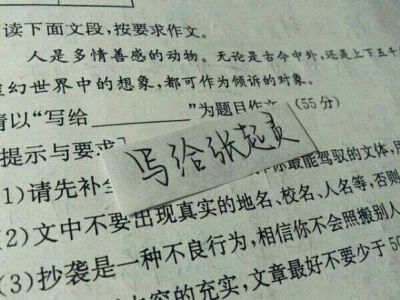 读下面文段,按要求作文。
人是多情善感的动物。无论是古今中外,还是上下五千
幻世界中的想象,都可作为倾诉的对象。
请以“写给________”为题目作文 (55分)
提示与要求
写给张起灵
(1)请先补全 你最能驾驭的文体,用
(2)文中不要出现真实的地名、校名、人名等,否则
(3)抄袭是一种不良行为,相信你不会照搬别人
的充实,文章最好不要少于50